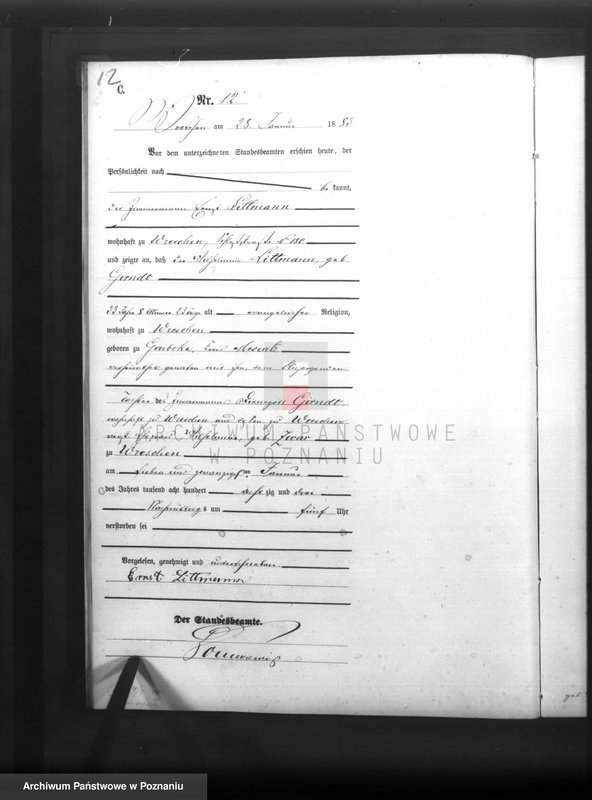 12
C.
Nr. 12
Wreschen am 28. Januar 1883
Vor dem unterzeichneten Standesbeamten erschien heute, der
Persönlichkeit nach
be kannt,
der Zimmermann Ernst Littmann
wohnhaft zu Wreschen, № 180
und zeigte an, daß die Wilhelmine Littmann, geb
Girndt
33 Jahre 8 Monate alt evangelischer Religion,
wohnhaft zu Wreschen
geboren zu Kreis
verheirathet gewesen mit ihm, dem Anzeigenden
Tochter des Zimmermanns Girndt,
zu Wreschen und zu Wreschen
geb.
zu Wreschen
am sieben und zwanzigsten Januar
des Jahres tausend acht hundert acht zig und drei
Nachmittags um fünf Uhr
verstorben sei
Vorgelesen, genehmigt und unterschrieben
Ernst Littmann
Der Standesbeamte.
ARCHIWUM PAŃSTWOWE
W POZNANIU
Archiwum Państwowe w Poznaniu